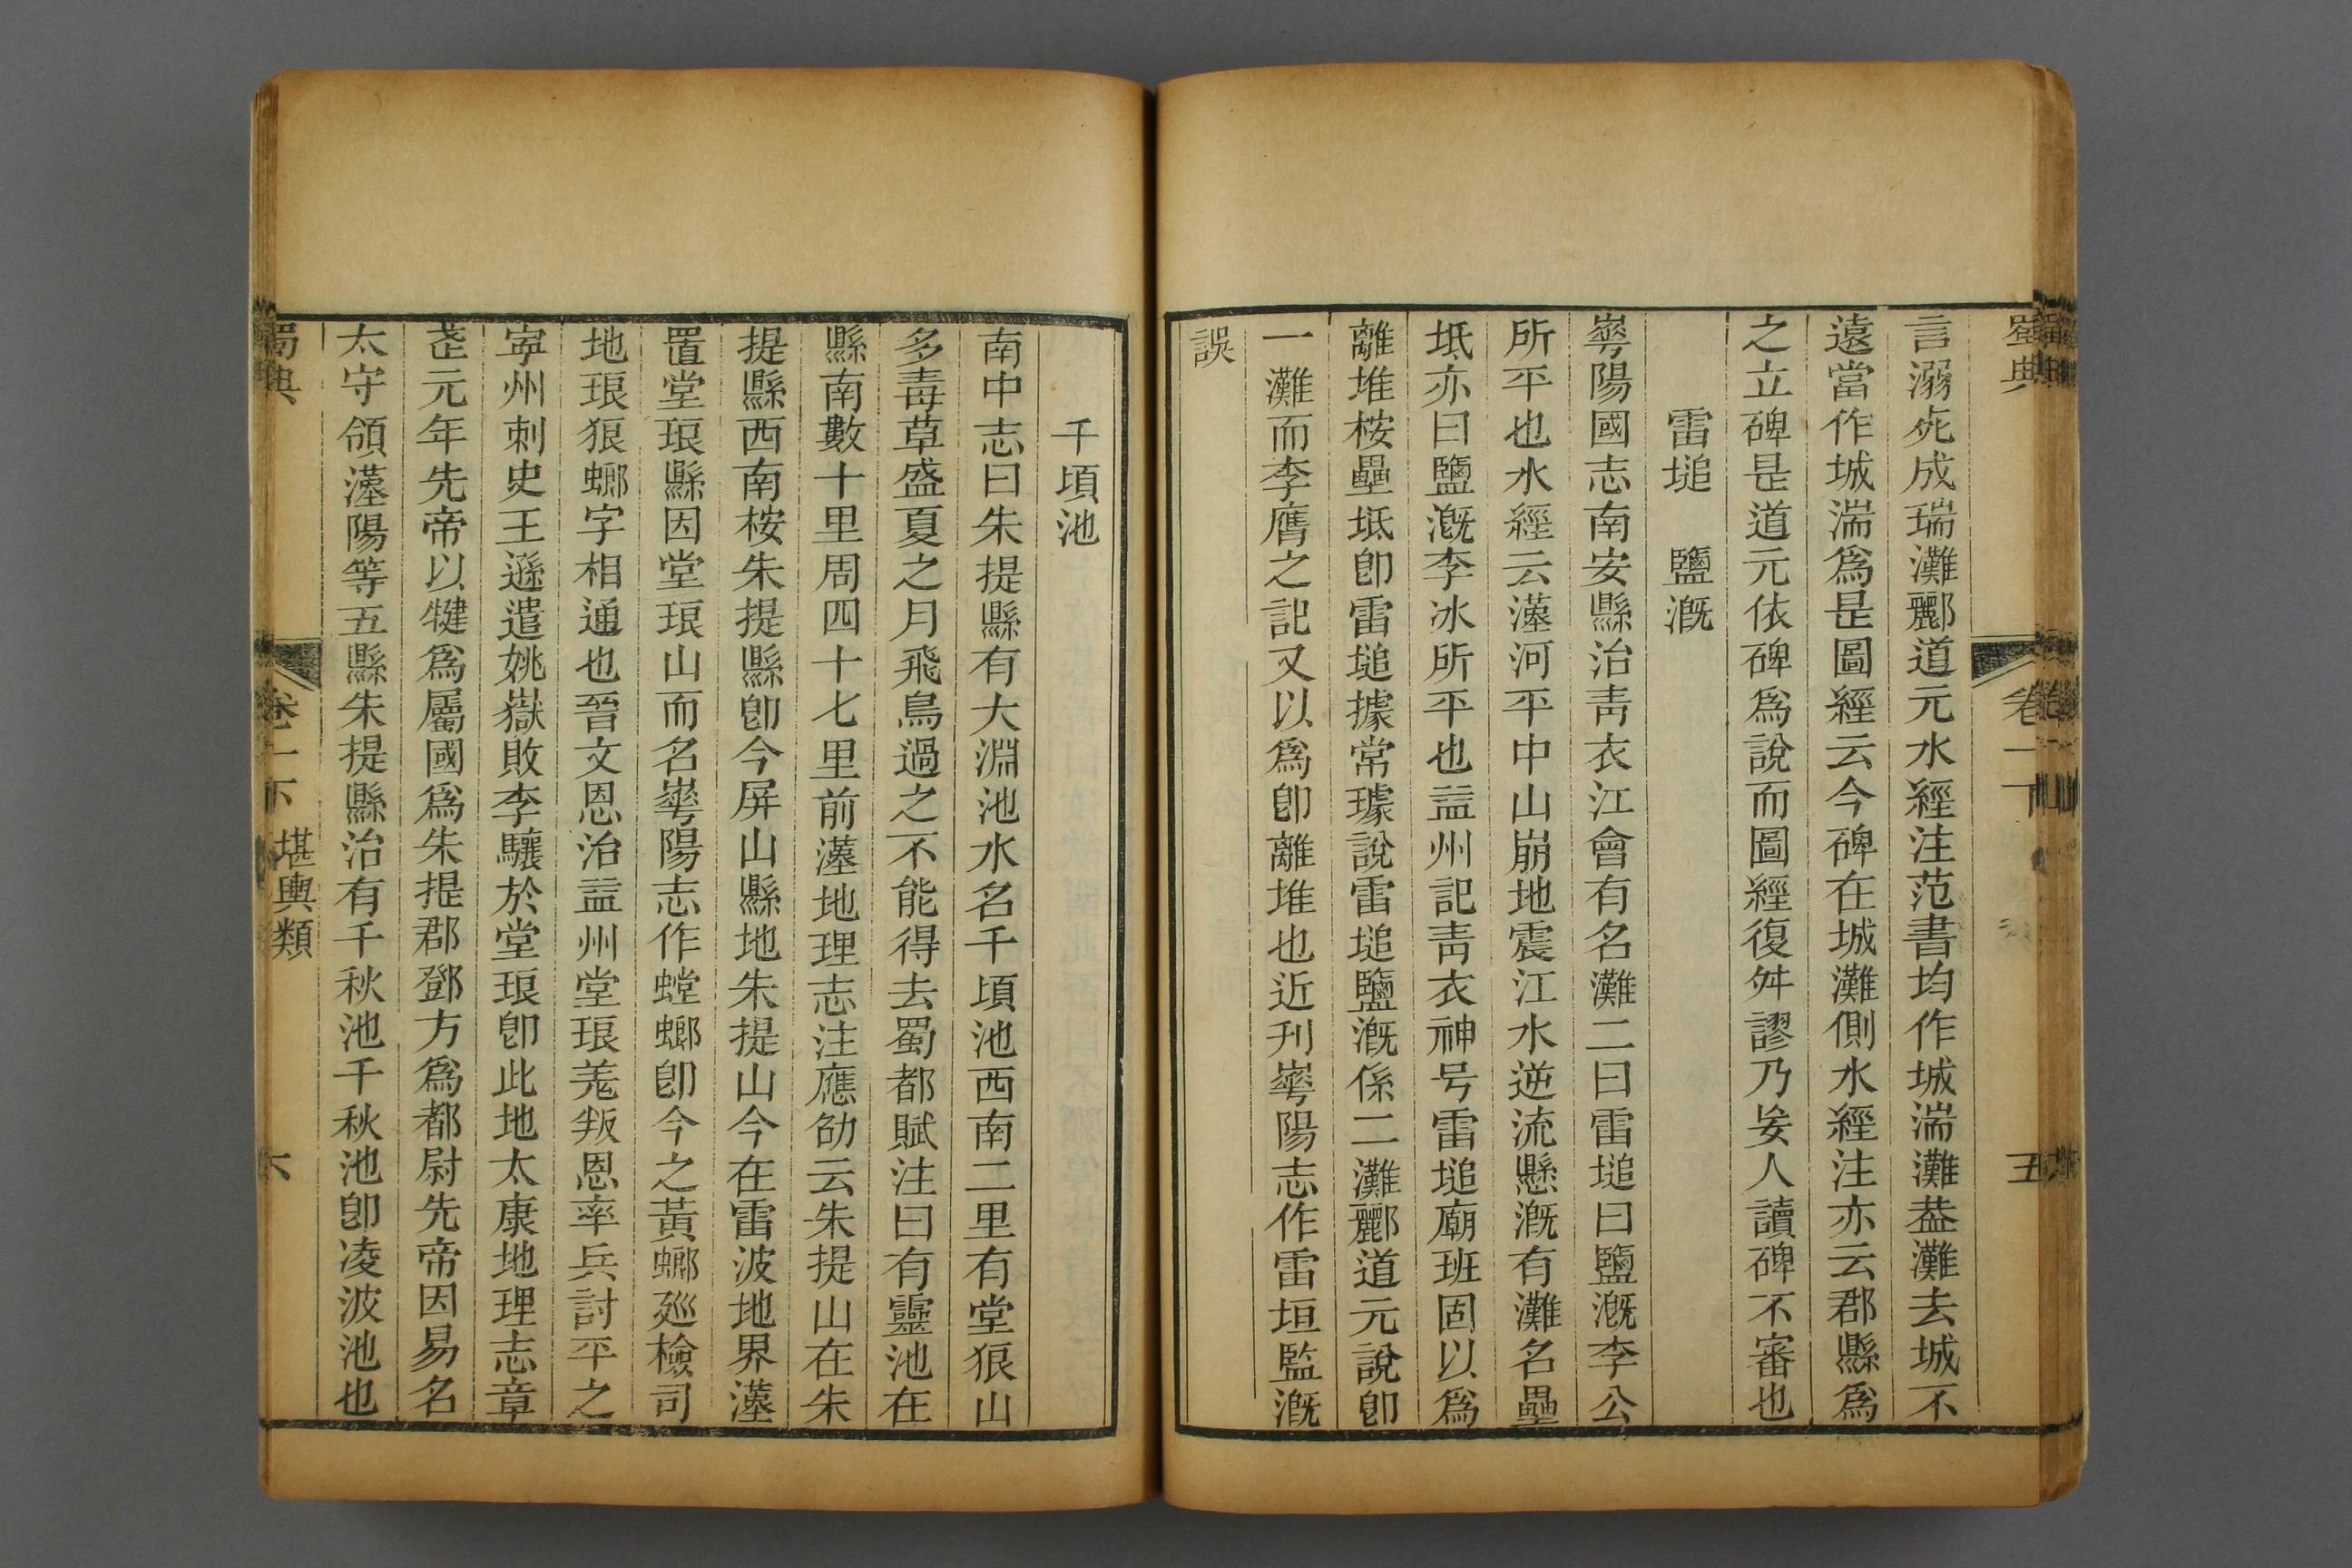 蜀典
卷一下
五
言溺死成瑞灘酈道元水經注范書均作城湍灘葢灘去城不
遠當作城湍爲是圖經云今碑在城灘側水經注亦云郡縣爲
之立碑是道元依碑爲說而圖經復舛謬乃妄人讀碑不審也
雷塠 鹽溉
崋陽國志南安縣治靑衣江會有名灘二曰雷塠曰鹽溉李公
所平也水經云漢河平中山崩地震江水逆流懸溉有灘名壘
坻亦曰鹽溉李冰所平也益州記靑衣神号雷塠廟班固以爲
離堆桉壘坻卽雷塠據常璩說雷塠鹽溉係二灘酈道元說卽
一灘而李膺之記又以爲卽離堆也近刊崋陽志作雷垣監溉
誤
千頃池
南中志曰朱提縣有大淵池水名千頃池西南二里有堂狼山
多毒草盛夏之月飛鳥過之不能得去蜀都賦注曰有靈池在
縣南數十里周四十七里前漢地理志注應劭云朱提山在朱
提縣西南桉朱提縣卽今屏山縣地朱提山今在雷波地界漢
置堂琅縣因堂琅山而名崋陽志作螳螂卽今之黃螂廵檢司
地琅狼螂字相通也晉文恩治益州堂琅羌叛恩率兵討平之
寧州刺史王遜遣姚嶽敗李驤於堂琅卽此地太康地理志章
武元年先帝以犍爲屬國爲朱提郡鄧方爲都尉先帝因易名
太守領漢陽等五縣朱提縣治有千秋池千秋池卽凌波池也
蜀典
卷一下
堪輿類
六